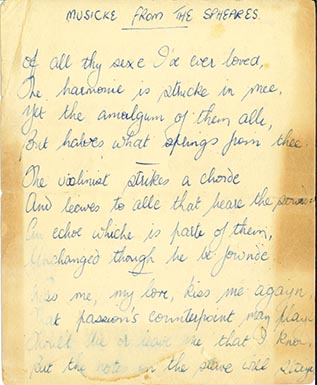 MUSICKE FROM THE SPHEARES.
Of all thy sexe I'de ever loved,
The harmonie is strucke in mee,
Yet the amalgum of them alle,
But halves what springs from thee.
The violinist strikes a chorde
And leaves to alle that heare the
echoe whiche is parte of them,
Unchanged though he be
me, my love, kiss me agayn
passion's counterpoint may
or leave me that I know,
But the notes on the stave will staye